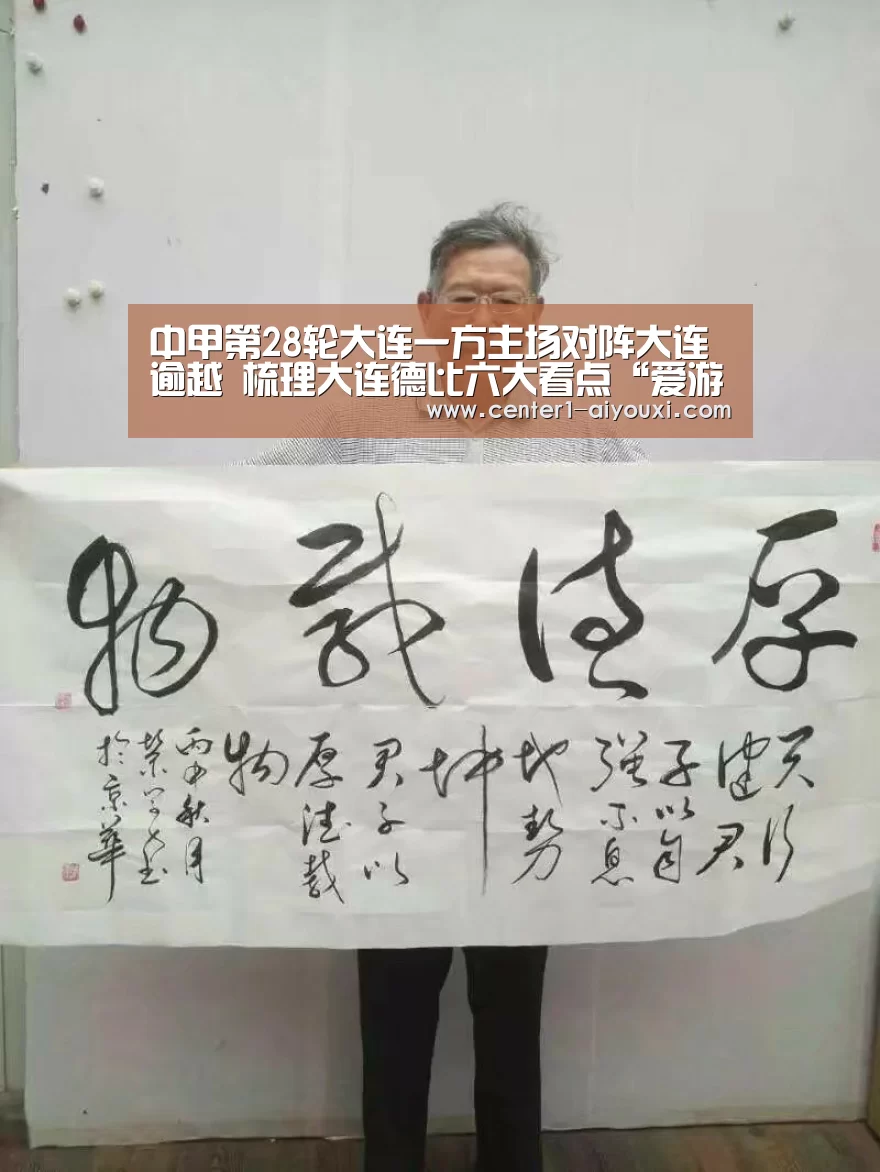 中甲第28轮大连一方主场对阵大连
逾越 梳理大连德比六大看点“爱游
www.center1-aiyouxi.com
厚德载物
天行
健君
子以自
强不息
地势
坤
君子以
厚德载
物
丙申秋月
荣书
於京華